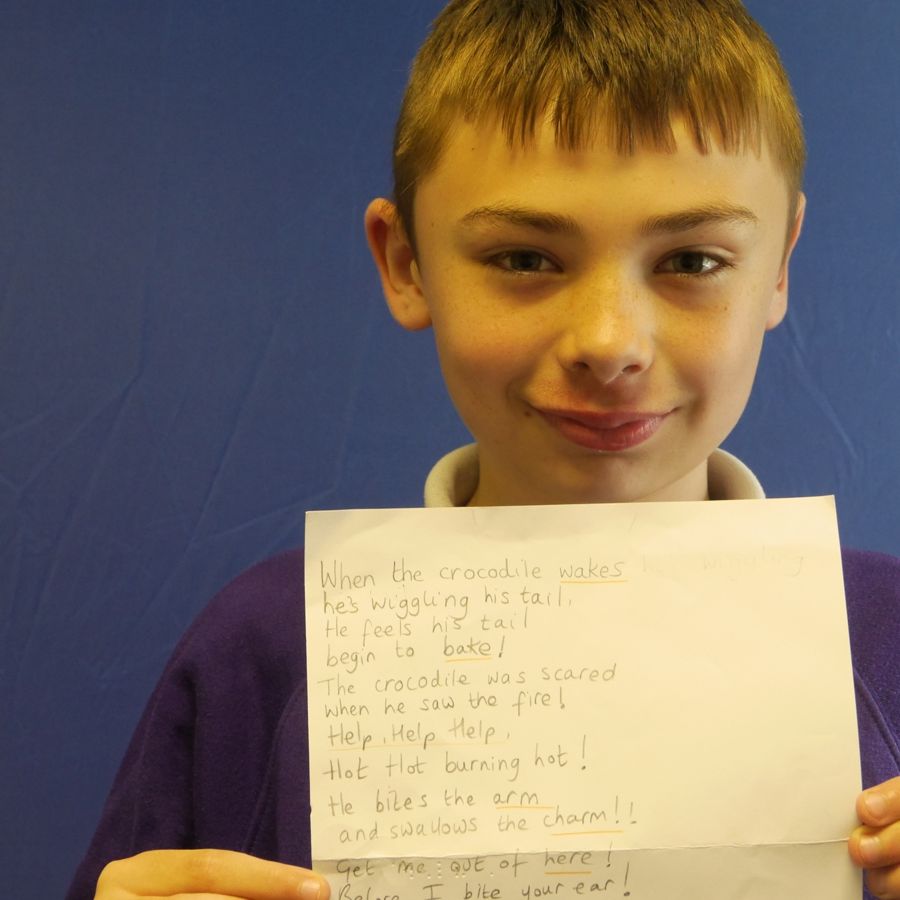 When the crocodile wakes he's wiggling
he's wiggling his tail.
He feels his tail
begin to bake!
The crocodile was scared
when he saw the fire!
Help, Help Help,
Hot Hot burning hot!
He bites the arm
and swallows the charm!!
Get me out of here!
Before I bite your ear!